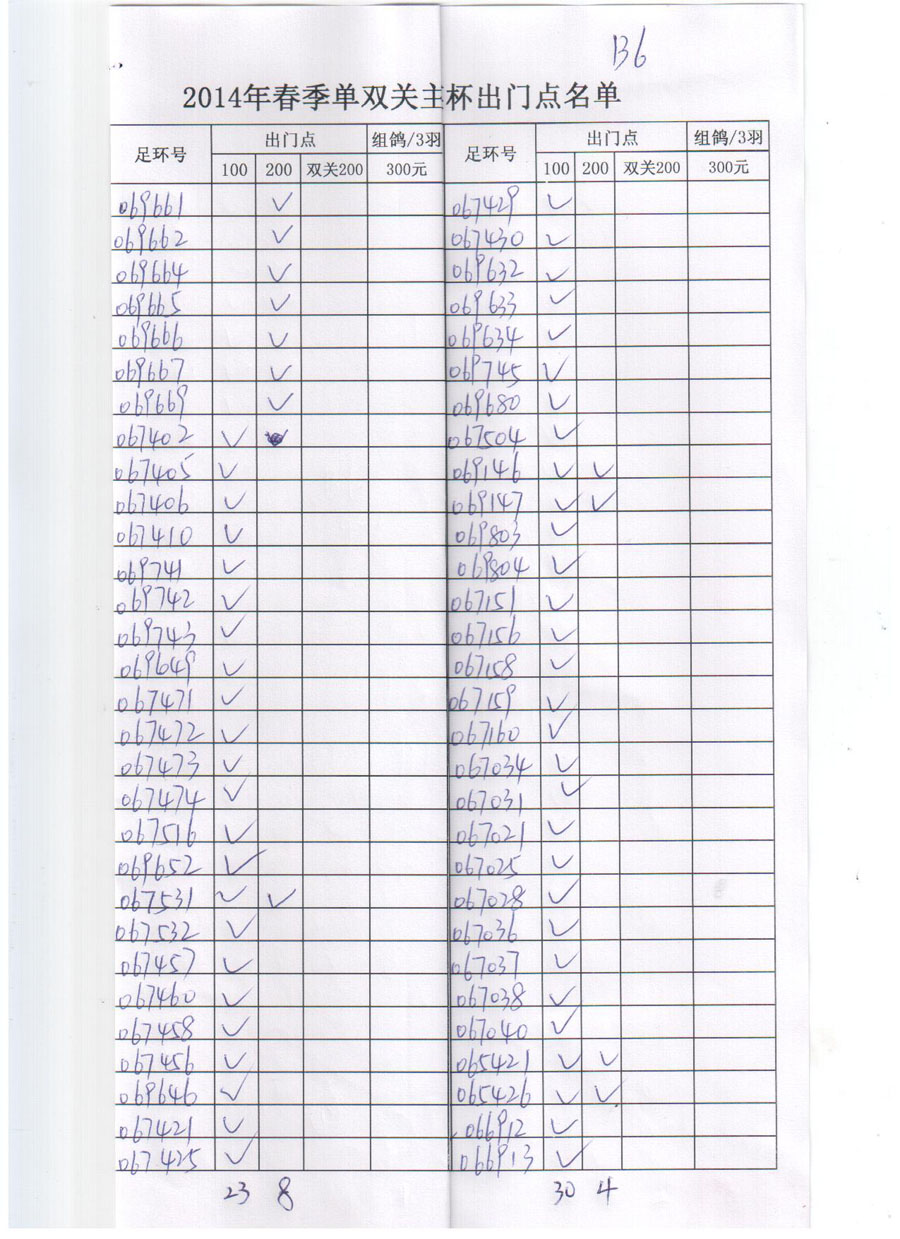 B6
2014年春季单双关主杯出门点名单
足环号 出门点 组鸽/3羽 足环号 出门点 组鸽/3羽
100 200 双关200 300元 100 200 双关200 300元
069661 ✓ 067429 ✓
069662 ✓ 067430 ✓
069664 ✓ 069632 ✓
069665 ✓ 069633 ✓
069666 ✓ 069634 ✓
069667 ✓ 069745 ✓
069669 ✓ 069680 ✓
067402 ✓ 067504 ✓
067405 ✓ 069146 ✓ ✓
067406 ✓ 069147 ✓ ✓
067410 ✓ 069803 ✓
069741 ✓ 069804 ✓
069742 ✓ 067151 ✓
069743 ✓ 067156 ✓
069649 ✓ 067158 ✓
067471 ✓ 067159 ✓
067472 ✓ 067160 ✓
067473 ✓ 067034 ✓
067474 ✓ 067031 ✓
067516 ✓ 067021 ✓
069652 ✓ 067025 ✓
067531 ✓ ✓ 067028 ✓
067532 ✓ 067036 ✓
067457 ✓ 067037 ✓
067460 ✓ 067038 ✓
067458 ✓ 067040 ✓
067456 ✓ 065421 ✓ ✓
069646 ✓ 065426 ✓ ✓
067421 ✓ 066912 ✓
067425 ✓ 066913 ✓
23 8 30 4